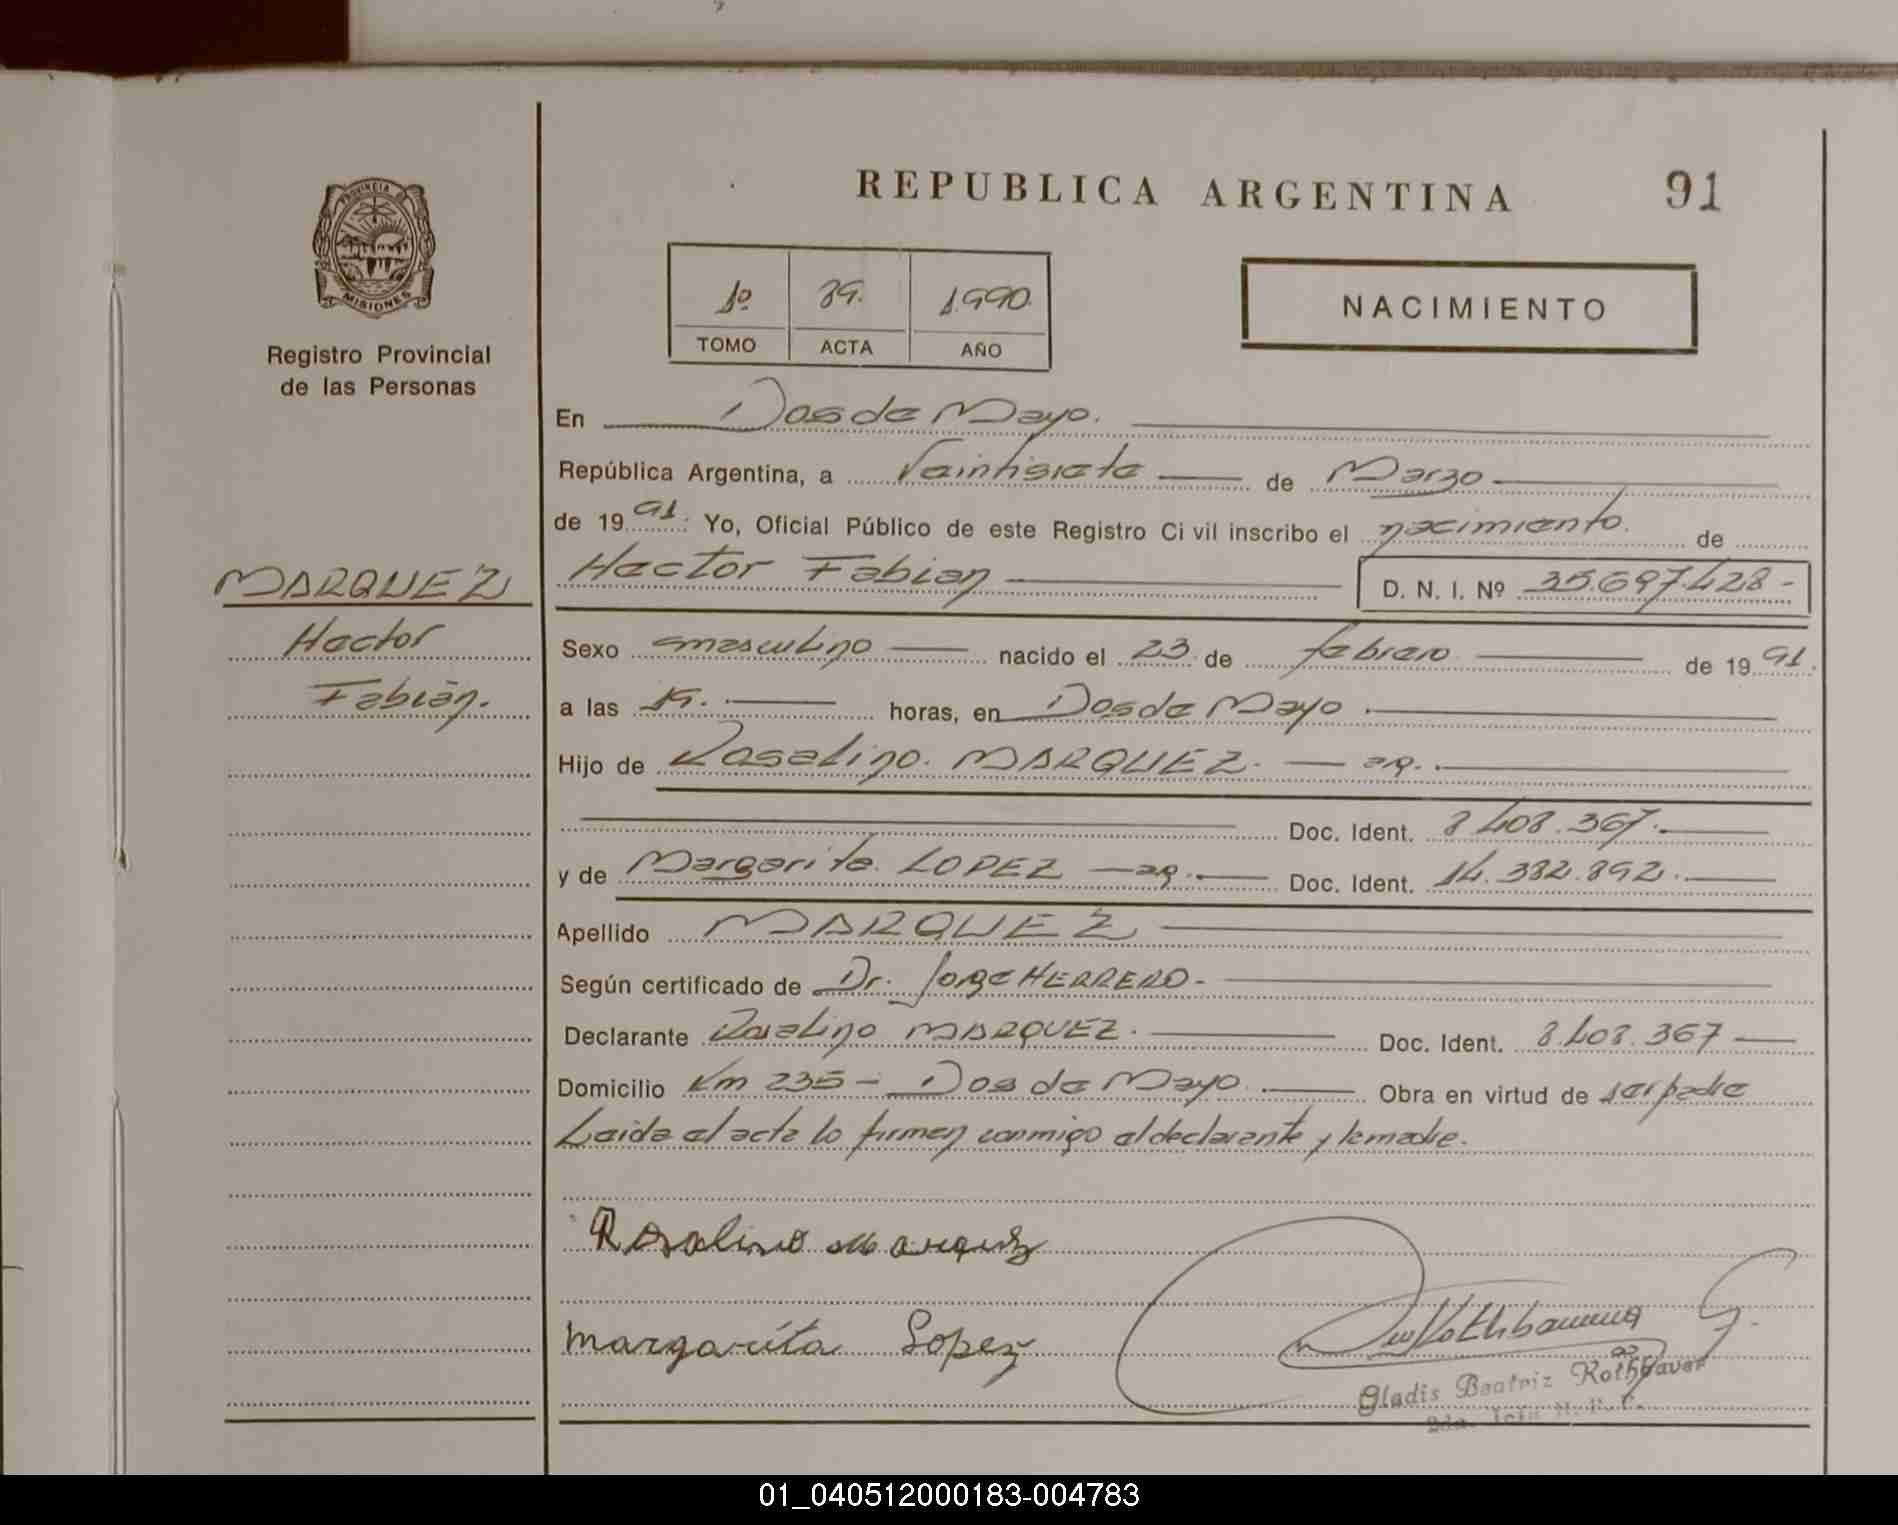 REPUBLICA ARGENTINA 91
PROVINCIA DE
MISIONES
Registro Provincial
de las Personas
1º 89. 1.990.
TOMO ACTA AÑO
NACIMIENTO
En Dos de Mayo.
República Argentina, a Veintisiete de Marzo
de 1991: Yo, Oficial Público de este Registro Ci vil inscribo el nacimiento. de
MARQUEZ
Hector
Fabián.
Hector Fabian D. N. I. Nº 35.697.428-
Sexo masculino nacido el 23 de febrero de 1991.
a las 19. horas, en Dos de Mayo
Hijo de Rosalino. MARQUEZ. — ar.
Doc. Ident. 8.408.367.
y de Margarita. LOPEZ — ar. Doc. Ident. 14.382.892.
Apellido MARQUEZ
Según certificado de Dr. Jorge HERRERO-
Declarante Rosalino MARQUEZ. Doc. Ident. 8.408.367
Domicilio Km 235 - Dos de Mayo. Obra en virtud de ser padre
Leida el acta lo firman conmigo el declarante y la madre.
Rosalino Marquez
Margarita Lopez
Gladis Beatriz Rothbauer
01_040512000183-004783